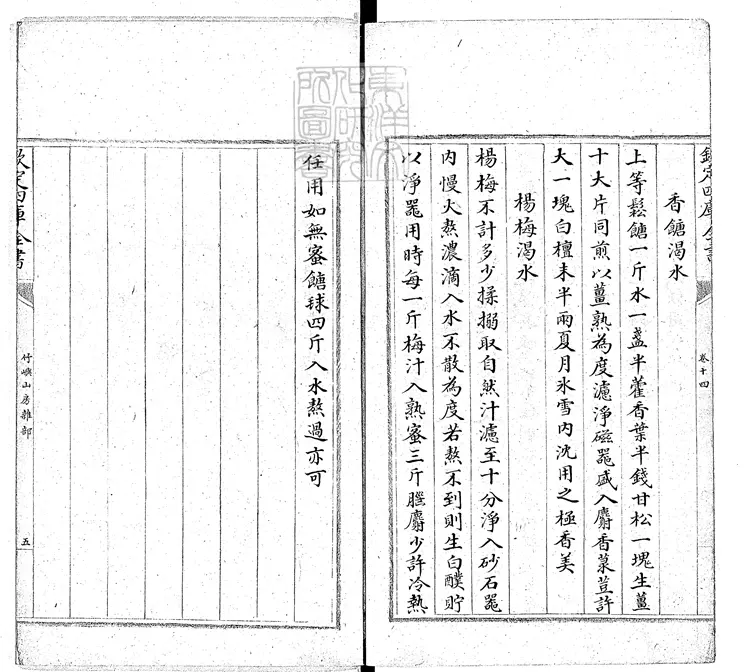 欽定四庫全書
卷十四
香餹渴水
上等鬆餹一斤水一盞半藿香葉半錢甘松一塊生薑
十大片同煎以薑熟為度濾淨磁器盛入麝香菉荳許
大一塊白檀末半兩夏月氷雪內沈用之極香美
楊梅渴水
楊梅不計多少揉搦取自然汁濾至十分淨入砂石器
內慢火熬濃滴入水不散為度若熬不到則生白醭貯
以淨器用時每一斤梅汁入熟蜜三斤腦麝少許冷熱
任用如無蜜餹毬四斤入水熬過亦可
欽定四庫全書
竹嶼山房雜部
五